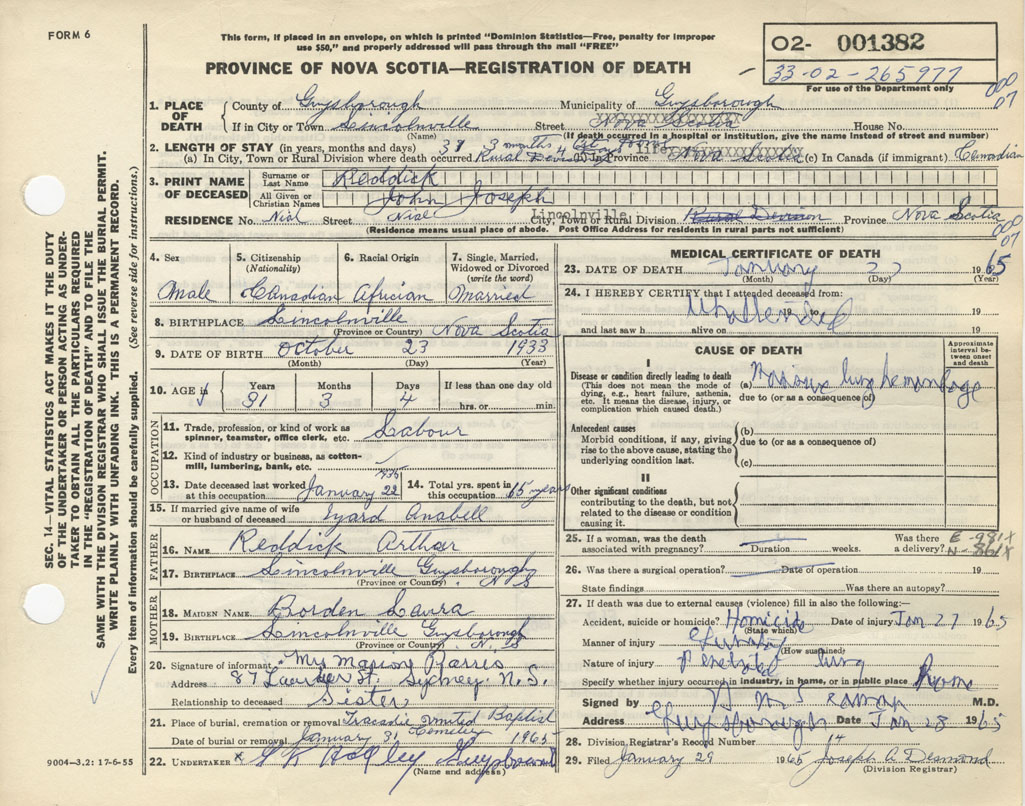 FORM 6
This form, if placed in an envelope, on which is printed "Dominion Statistics—Free, penalty for improper
use $50," and properly addressed will pass through the mail "FREE"
PROVINCE OF NOVA SCOTIA—REGISTRATION OF DEATH
O2- 001382
33-02-265977
For use of the Department only
000
07
1. PLACE OF DEATH
County of Guysborough Municipality of Guysborough
If in City or Town Lincolnville Street Nova Scotia House No.
(Name) (If death occurred in a hospital or institution, give the name instead of street and number)
2. LENGTH OF STAY (in years, months and days) 31 3 months 4 days life
(a) In City, Town or Rural Division where death occurred Rural Division (b) In Province Nova Scotia (c) In Canada (if immigrant) Canadian
3. PRINT NAME OF DECEASED
Surname or Last Name Reddick
All Given or Christian Names John Joseph
RESIDENCE No. Nial Street Nial Lincolnville City, Town or Rural Division Rural Division Province Nova Scotia
(Residence means usual place of abode. Post Office Address for residents in rural parts not sufficient)
000
07
4. Sex Male
5. Citizenship (Nationality) Canadian
6. Racial Origin African
7. Single, Married, Widowed or Divorced (write the word) Married
8. BIRTHPLACE Lincolnville Nova Scotia
(Province or Country)
9. DATE OF BIRTH October 23 1933
(Month) (Day) (Year)
10. AGE Years 31 Months 3 Days 4 If less than one day old hrs. or min.
OCCUPATION
11. Trade, profession, or kind of work as spinner, teamster, office clerk, etc. Labour
12. Kind of industry or business, as cotton-mill, lumbering, bank, etc.
13. Date deceased last worked at this occupation January 22
14. Total yrs. spent in this occupation 65 years
15. If married give name of wife or husband of deceased Izard Anabell
FATHER
16. NAME Reddick Arthur
17. BIRTHPLACE Lincolnville Guysborough N.S
(Province or Country)
MOTHER
18. MAIDEN NAME Borden Laura
19. BIRTHPLACE Lincolnville Guysborough N.S
(Province or Country)
20. Signature of informant Marion Parris
Address 87 St. Sydney N.S.
Relationship to deceased Sister
21. Place of burial, cremation or removal Tracadie United Baptist Cemetery
Date of burial or removal January 31 1965
22. UNDERTAKER Guysboro
(Name and address)
MEDICAL CERTIFICATE OF DEATH
23. DATE OF DEATH January 27 1965
(Month) (Day) (Year)
24. I HEREBY CERTIFY that I attended deceased from:
Unattended 19 to 19
and last saw h alive on 19
CAUSE OF DEATH
Approximate interval between onset and death
I
Disease or condition directly leading to death
(This does not mean the mode of dying, e.g., heart failure, asthenia, etc. It means the disease, injury, or complication which caused death.)
(a) Massive lung hemorrhage
due to (or as a consequence of)
Antecedent causes
Morbid conditions, if any, giving rise to the above cause, stating the underlying condition last.
(b)
due to (or as a consequence of)
(c)
II
Other significant conditions
contributing to the death, but not related to the disease or condition causing it.
25. If a woman, was the death associated with pregnancy? Duration weeks. Was there a delivery?
E-981X
N-861X
26. Was there a surgical operation? Date of operation 19
State findings Was there an autopsy?
27. If death was due to external causes (violence) fill in also the following:—
Accident, suicide or homicide? Homicide Date of injury Jan 27 1965
(State which)
Manner of injury
(How sustained)
Nature of injury lung
Specify whether injury occurred in industry, in home, or in public place Home
Signed by M.D.
Address Guysborough Date Jan 28 1965
28. Division Registrar's Record Number 14
29. Filed January 29 1965 Joseph A Desmond
(Division Registrar)
SEC. 14—VITAL STATISTICS ACT MAKES IT THE DUTY
OF THE UNDERTAKER OR PERSON ACTING AS UNDER-
TAKER TO OBTAIN ALL THE PARTICULARS REQUIRED
IN THE "REGISTRATION OF DEATH" AND TO FILE THE
SAME WITH THE DIVISION REGISTRAR WHO SHALL ISSUE THE BURIAL PERMIT.
WRITE PLAINLY WITH UNFADING INK. THIS IS A PERMANENT RECORD.
Every item of information should be carefully supplied. (See reverse side for instructions.)
9004—3.2: 17-6-55